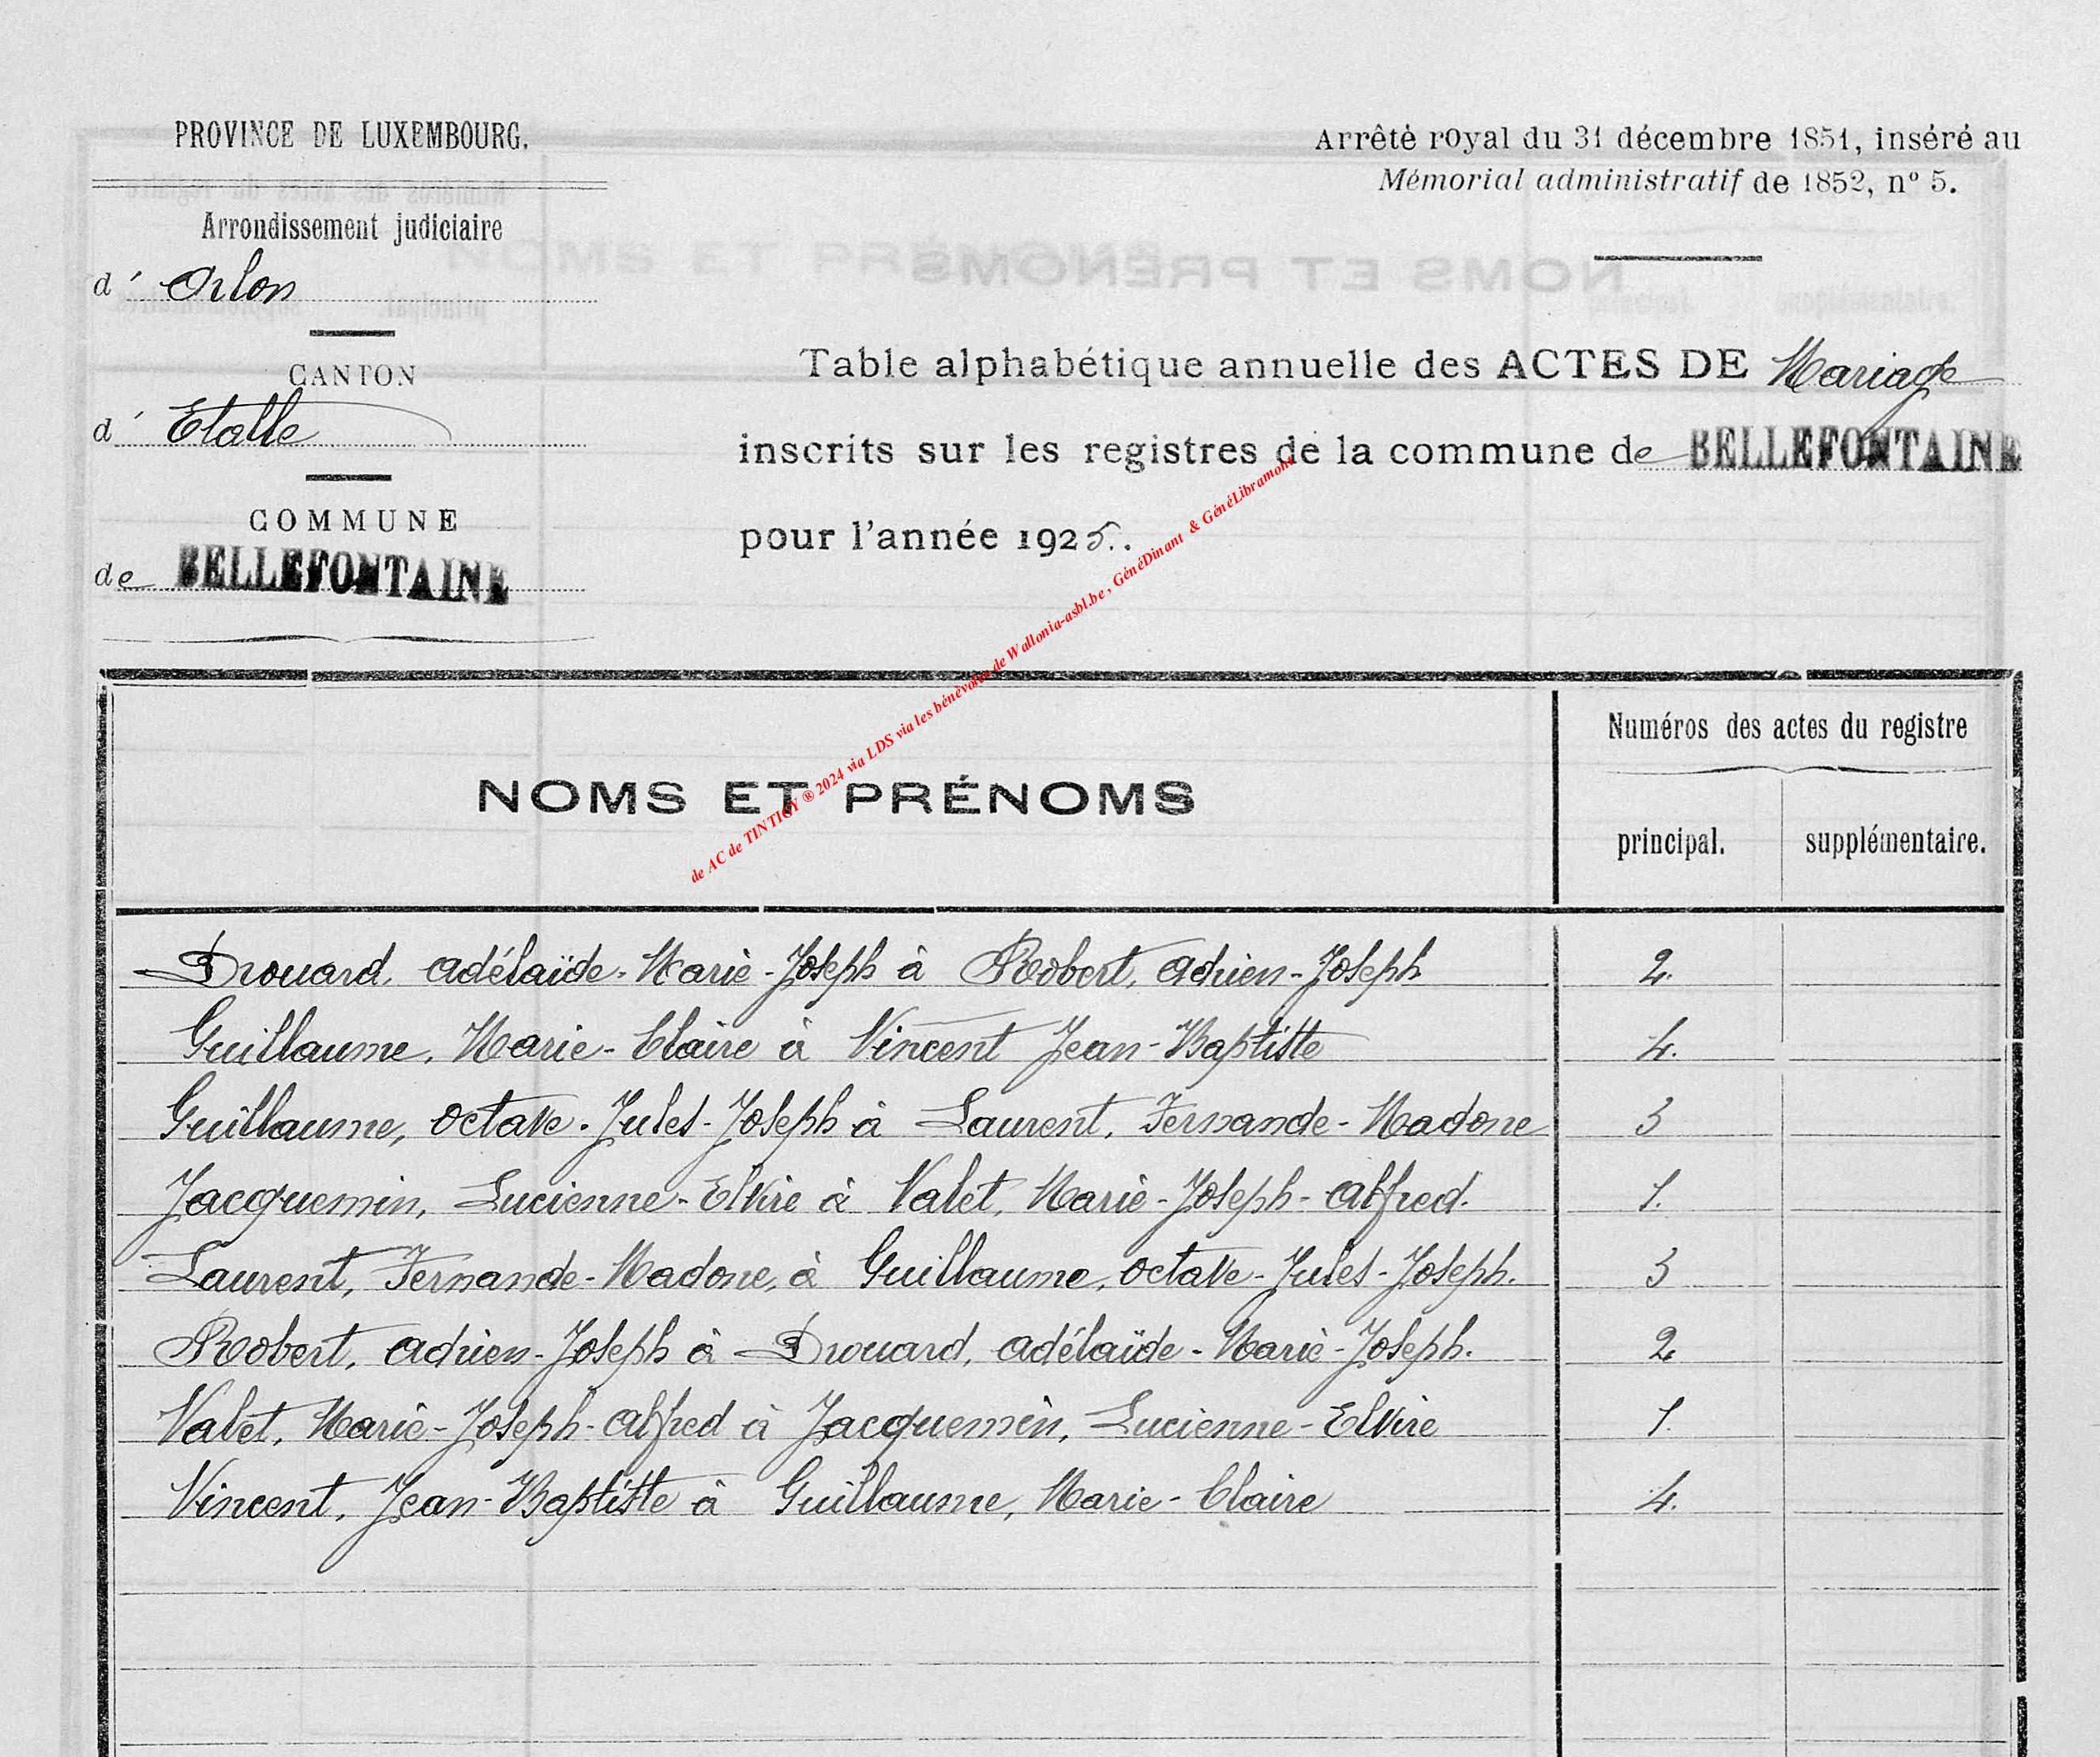 PROVINCE DE LUXEMBOURG.
Arrondissement judiciaire
d' Arlon
CANTON
d' Etalle
COMMUNE
de BELLEFONTAINE
Arrêté royal du 31 décembre 1851, inséré au
Mémorial administratif de 1852, nº 5.
Table alphabétique annuelle des ACTES DE Mariage
inscrits sur les registres de la commune de BELLEFONTAINE
pour l'année 1925.
de AC de TINTIGY ® 2024 via LDS via les bénévoles de Wallonia-asbl.be , GénéDinant & GénéLibramont
NOMS ET PRÉNOMS
Numéros des actes du registre
principal. supplémentaire.
Drouard, Adélaïde-Marie-Joseph à Robert, Adrien-Joseph 2.
Guillaume, Marie-Claire à Vincent Jean-Baptiste 4.
Guillaume, Octave-Jules-Joseph à Laurent, Fernande-Madone 3
Jacquemin, Lucienne-Elvire à Valet, Marie-Joseph-Alfred. 1.
Laurent, Fernande-Madone, à Guillaume, Octave-Jules-Joseph. 3
Robert, Adrien-Joseph à Drouard, Adélaïde-Marie-Joseph. 2
Valet, Marie-Joseph-Alfred à Jacquemin, Lucienne-Elvire 1.
Vincent, Jean-Baptiste à Guillaume, Marie-Claire 4.